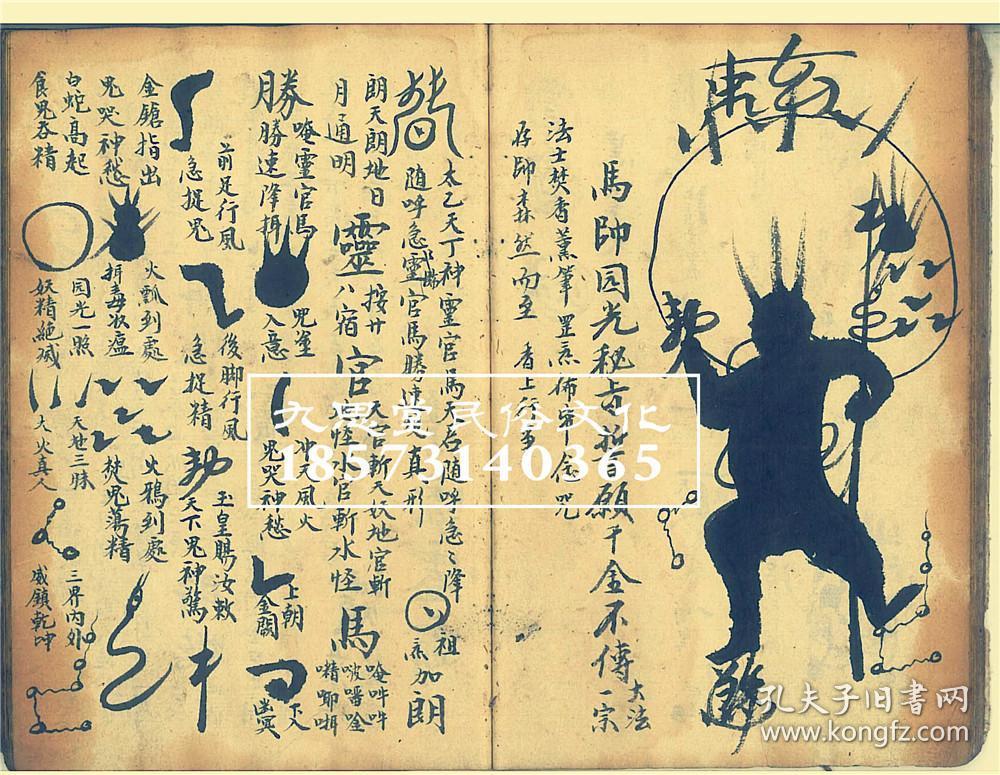 馬帥园光秘
願千金不傳
大法
一宗
法士焚香薰筆罡炁佈牢念咒
存帥森然而至
香上行事
太乙天丁神靈官馬天君随呼急々降
祖
随呼急
靈官馬勝速
真形
炁加朗
朗天朗地日
月通明
靈
按廿
八宿
官
天官斬天妖地官斬
地怪水官斬水怪
馬
唵吽吽
勝
唵靈官馬
勝速降
咒塗
入意
冲天風火
鬼哭神愁
上朝
金闕
下入
幽冥
前足行風
急捉鬼
後脚行風
急捉精
勅
玉皇賜汝敕
天下鬼神驚
金鎗指出
鬼哭神愁
火瓢到處
火鴉到處
焚鬼蕩精
白蛇高起
食鬼吞精
园光一照
妖精絶滅
天地三昧
大火真人
三界内外
威鎮乾坤
九思堂民俗文化
18573140365
孔夫子旧書网
www.kongfz.com